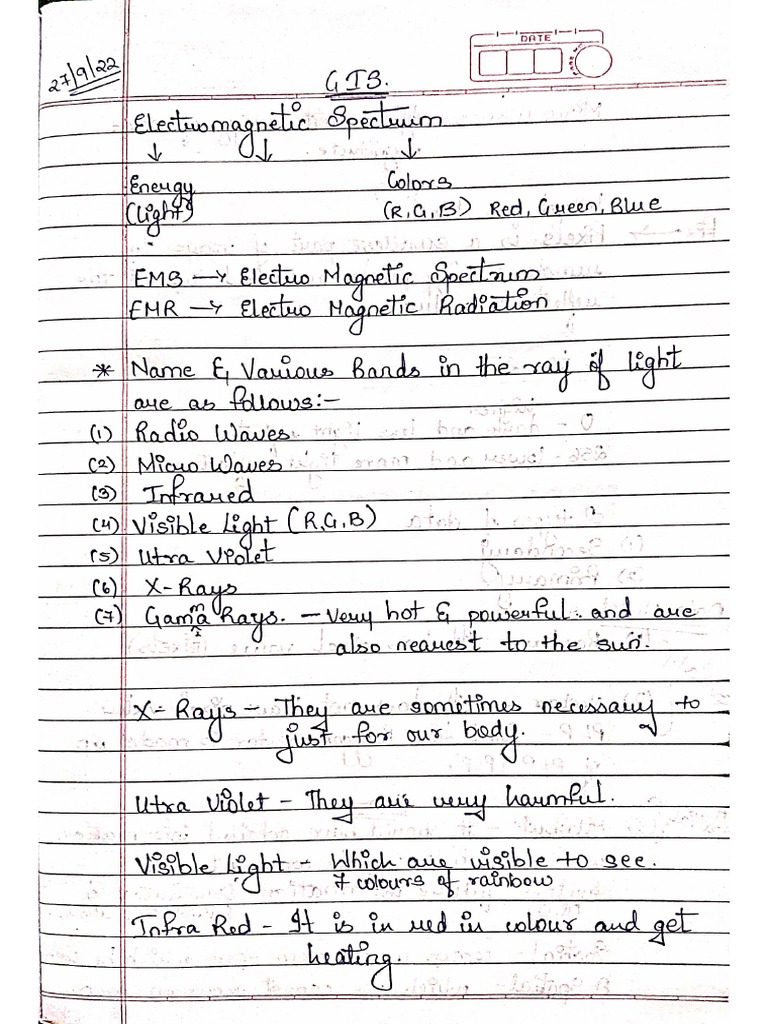 DATE
27/9/22
GIS.
Electromagnetic Spectrum
↓ ↓ ↓
Energy Colors
(Light) (R,G,B) Red, Green, Blue
EMS → Electro Magnetic Spectrum
EMR → Electro Magnetic Radiation
* Name & Various Bands in the ray of light
are as follows:-
(1) Radio Waves
(2) Micro Waves
(3) Infrared
(4) Visible Light (R,G,B)
(5) Utra Violet
(6) X-Rays
(7) Gamma Rays. - Very hot & powerful and are
also nearest to the sun.
X- Rays - They are sometimes necessary to
just for our body.
Utra Violet - They are very harmful.
Visible Light - Which are visible to see.
7 colours of rainbow
Infra Red - It is in red in colour and get
heating.